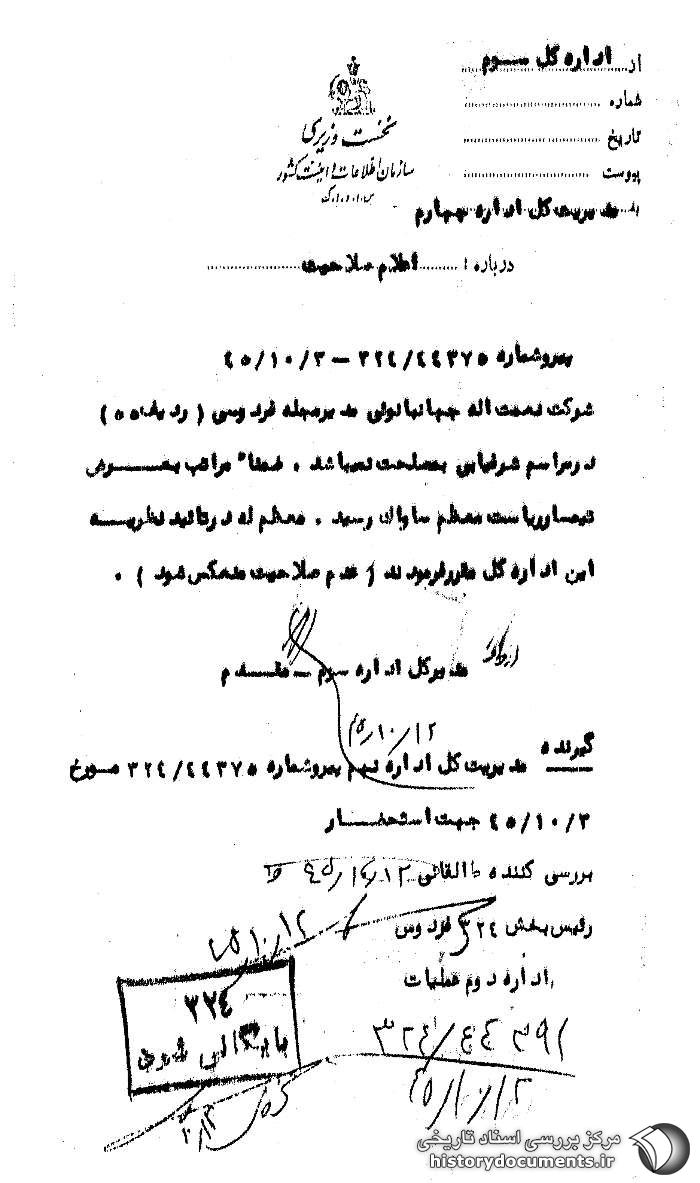 از اداره کل سوم
شماره
تاریخ
پیوست
به مدیریت کل اداره چهارم
نخست وزیری
سازمان اطلاعات و امنیت کشور
س.ا.و.ا.ک
درباره : اعلام صلاحیت
پیرو شماره ۳۲٤/٤٤۳۷۵ – ٤۵/۱۰/۳
شرکت نعمت اله جهانبانوئی مدیرمجله فردوسی ( ردیف۵۵ )
درمراسم شرفیابی بمصلحت نمیباشد . ضمنا" مراتب بعرض
تیمسارریاست معظم ساواک رسید . معظم له درتائید نظریه
این اداره کل مقررفرمودند ( عدم صلاحیت منعکس شود ) .
مدیرکل اداره سوم – مقدم
۴۵/۱۰/۱۲
گیرنده
مدیریت کل اداره نهم پیروشماره ۳۲٤/٤٤۳۷۵ مورخ
٤۵/۱۰/۳ جهت استحضار
بررسی کننده طالقانی ۴۵/۱۰/۱۲
رئیس بخش ۳۲٤ فردوس
۴۵/۱۰/۱۲
اداره دوم عملیات
۳۲٤
بایگانی شود
۳۲۴/۴۴۳۹۱
۴۵/۱۰/۱۲
مرکز بررسی اسناد تاریخی
historydocuments.ir